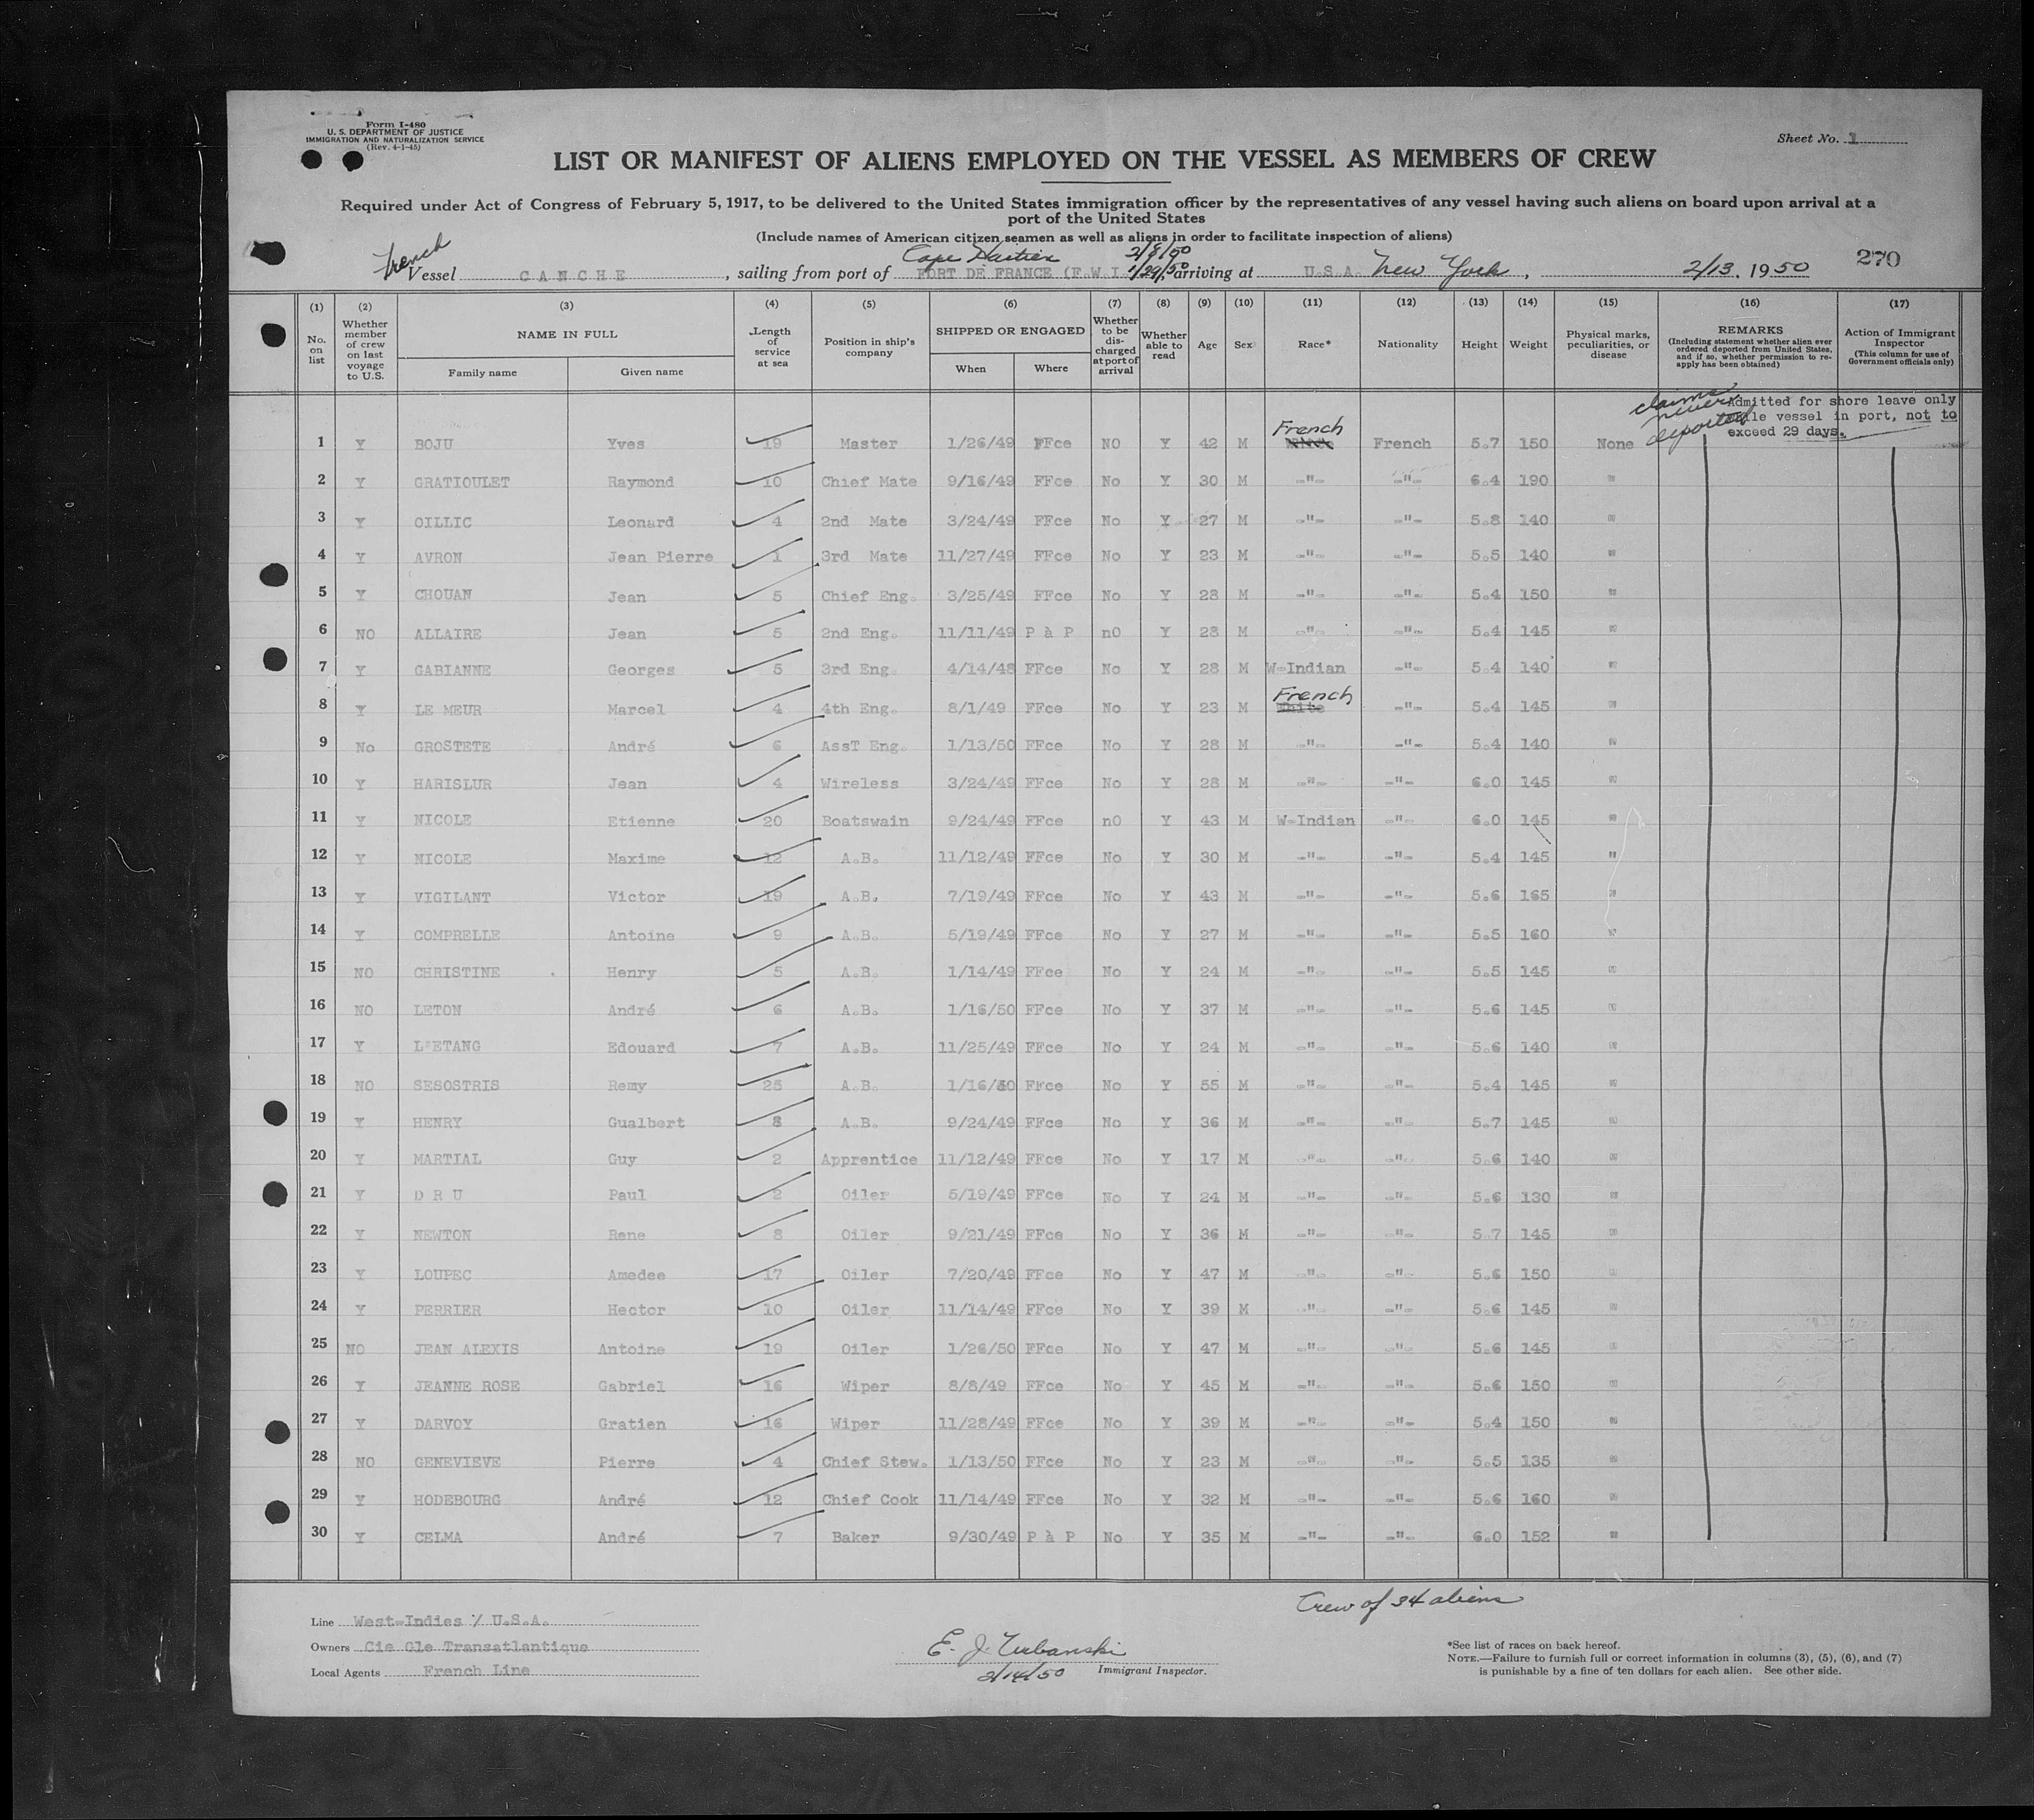 Form I-480
U. S. DEPARTMENT OF JUSTICE
IMMIGRATION AND NATURALIZATION SERVICE
(Rev. 4-1-45)
Sheet No. 1
LIST OR MANIFEST OF ALIENS EMPLOYED ON THE VESSEL AS MEMBERS OF CREW
Required under Act of Congress of February 5, 1917, to be delivered to the United States immigration officer by the representatives of any vessel having such aliens on board upon arrival at a
port of the United States
(Include names of American citizen seamen as well as aliens in order to facilitate inspection of aliens)
French Cape Haitien 2/9/50 270
Vessel CANCHE, sailing from port of FORT DE FRANCE (F.W.I. 1/29/50, arriving at U.S.A. New York, 2/13, 1950
(1) (2) (3) (4) (5) (6) (7) (8) (9) (10) (11) (12) (13) (14) (15) (16) (17)
No. on list | Whether member of crew on last voyage to U.S. | NAME IN FULL | Family name | Given name | Length of service at sea | Position in ship's company | SHIPPED OR ENGAGED | When | Where | Whether to be discharged at port of arrival | Whether able to read | Age | Sex | Race* | Nationality | Height | Weight | Physical marks, peculiarities, or disease | REMARKS (Including statement whether alien ever ordered deported from United States, and if so, whether permission to reapply has been obtained) | Action of Immigrant Inspector (This column for use of Government officials only)
claims never deported
Admitted for shore leave only
while vessel in port, not to
exceed 29 days.
French
1 Y BOJU Yves 19 Master 1/26/49 FFce NO Y 42 M French 5.7 150 None
2 Y GRATIOULET Raymond 10 Chief Mate 9/16/49 FFce No Y 30 M -"- -"- 6.4 190 "
3 Y OILLIC Leonard 4 2nd Mate 3/24/49 FFce No Y 27 M -"- -"- 5.8 140 "
4 Y AVRON Jean Pierre 1 3rd Mate 11/27/49 FFce No Y 23 M -"- -"- 5.5 140 "
5 Y CHOUAN Jean 5 Chief Eng. 3/25/49 FFce No Y 28 M -"- -"- 5.4 150 "
6 NO ALLAIRE Jean 5 2nd Eng. 11/11/49 P à P nO Y 28 M -"- -"- 5.4 145 "
7 Y GABIANNE Georges 5 3rd Eng. 4/14/48 FFce No Y 28 M W-Indian -"- 5.4 140 "
French
8 Y LE MEUR Marcel 4 4th Eng. 8/1/49 FFce No Y 23 M White -"- 5.4 145 "
9 No GROSTETE André 6 AssT Eng. 1/13/50 FFce No Y 28 M -"- -"- 5.4 140 "
10 Y HARISLUR Jean 4 Wireless 3/24/49 FFce No Y 28 M -"- -"- 6.0 145 "
11 Y NICOLE Etienne 20 Boatswain 9/24/49 FFce nO Y 43 M W-Indian -"- 6.0 145 "
12 Y NICOLE Maxime 12 A.B. 11/12/49 FFce No Y 30 M -"- -"- 5.4 145 "
13 Y VIGILANT Victor 19 A.B. 7/19/49 FFce No Y 43 M -"- -"- 5.6 165 "
14 Y COMPRELLE Antoine 9 A.B. 5/19/49 FFce No Y 27 M -"- -"- 5.5 160 "
15 NO CHRISTINE Henry 5 A.B. 1/14/49 FFce No Y 24 M -"- -"- 5.5 145 "
16 NO LETON André 6 A.B. 1/16/50 FFce No Y 37 M -"- -"- 5.6 145 "
17 Y L'ETANG Edouard 7 A.B. 11/25/49 FFce No Y 24 M -"- -"- 5.6 140 "
18 NO SESOSTRIS Remy 25 A.B. 1/16/50 FFce No Y 55 M -"- -"- 5.4 145 "
19 Y HENRY Gualbert 8 A.B. 9/24/49 FFce No Y 36 M -"- -"- 5.7 145 "
20 Y MARTIAL Guy 2 Apprentice 11/12/49 FFce No Y 17 M -"- -"- 5.6 140 "
21 Y D R U Paul 2 Oiler 5/19/49 FFce No Y 24 M -"- -"- 5.6 130 "
22 Y NEWTON Rene 8 Oiler 9/21/49 FFce No Y 36 M -"- -"- 5.7 145 "
23 Y LOUPEC Amedee 17 Oiler 7/20/49 FFce No Y 47 M -"- -"- 5.6 150 "
24 Y PERRIER Hector 10 Oiler 11/14/49 FFce No Y 39 M -"- -"- 5.6 145 "
25 NO JEAN ALEXIS Antoine 19 Oiler 1/26/50 FFce No Y 47 M -"- -"- 5.6 145 "
26 Y JEANNE ROSE Gabriel 16 Wiper 8/8/49 FFce No Y 45 M -"- -"- 5.6 150 "
27 Y DARVOY Gratien 16 Wiper 11/28/49 FFce No Y 39 M -"- -"- 5.4 150 "
28 NO GENEVIEVE Pierre 4 Chief Stew. 1/13/50 FFce No Y 23 M -"- -"- 5.5 135 "
29 Y HODEBOURG André 12 Chief Cook 11/14/49 FFce No Y 32 M -"- -"- 5.6 160 "
30 Y CELMA André 7 Baker 9/30/49 P à P No Y 35 M -"- -"- 6.0 152 "
Crew of 34 aliens
Line West-Indies / U.S.A.
Owners Cie Gle Transatlantique
Local Agents French Line
E. J. Urbanski
2/14/50 Immigrant Inspector.
*See list of races on back hereof.
NOTE.—Failure to furnish full or correct information in columns (3), (5), (6), and (7)
is punishable by a fine of ten dollars for each alien. See other side.